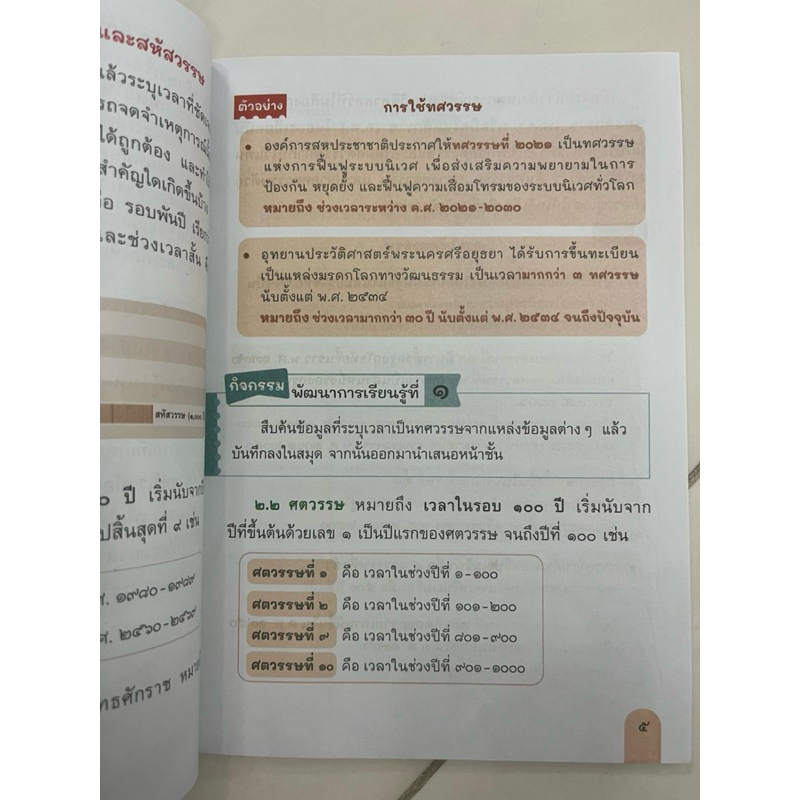 และสหัสวรรษ
ได้ถูกต้อง
สำคัญใดเกิดขึ้น
รอบพันปี
และช่วงเวลาสั้น
สหัสวรรษ (๑,๐๐๐
ปี เริ่มนับจาก
สิ้นสุดที่ ๙ เช่น
๑๙๘๐-๑๙๘๙
๒๕๖๐-๒๕๖๙
ตัวอย่าง
การใช้ทศวรรษ
• องค์การสหประชาชาติประกาศให้ทศวรรษที่ ๒๐๒๑ เป็นทศวรรษ
แห่งการฟื้นฟูระบบนิเวศ เพื่อส่งเสริมความพยายามในการ
ป้องกัน หยุดยั้ง และฟื้นฟูความเสื่อมโทรมของระบบนิเวศทั่วโลก
หมายถึง ช่วงเวลาระหว่าง ค.ศ. ๒๐๒๑-๒๐๓๐
• อุทยานประวัติศาสตร์พระนครศรีอยุธยา ได้รับการขึ้นทะเบียน
เป็นแหล่งมรดกโลกทางวัฒนธรรม เป็นเวลามากกว่า ๓ ทศวรรษ
นับตั้งแต่ พ.ศ. ๒๕๓๔
หมายถึง ช่วงเวลามากกว่า ๓๐ ปี นับตั้งแต่ พ.ศ. ๒๕๓๔ จนถึงปัจจุบัน
กิจกรรม พัฒนาการเรียนรู้ที่ ๑
สืบค้นข้อมูลที่ระบุเวลาเป็นทศวรรษจากแหล่งข้อมูลต่าง ๆ แล้ว
บันทึกลงในสมุด จากนั้นออกมานำเสนอหน้าชั้น
๒.๒ ศตวรรษ หมายถึง เวลาในรอบ ๑๐๐ ปี เริ่มนับจาก
ปีที่ขึ้นต้นด้วยเลข ๑ เป็นปีแรกของศตวรรษ จนถึงปีที่ ๑๐๐ เช่น
ศตวรรษที่ ๑ คือ เวลาในช่วงปีที่ ๑-๑๐๐
ศตวรรษที่ ๒ คือ เวลาในช่วงปีที่ ๑๐๑-๒๐๐
ศตวรรษที่ ๙ คือ เวลาในช่วงปีที่ ๘๐๑-๙๐๐
ศตวรรษที่ ๑๐ คือ เวลาในช่วงปีที่ ๙๐๑-๑๐๐๐
๕